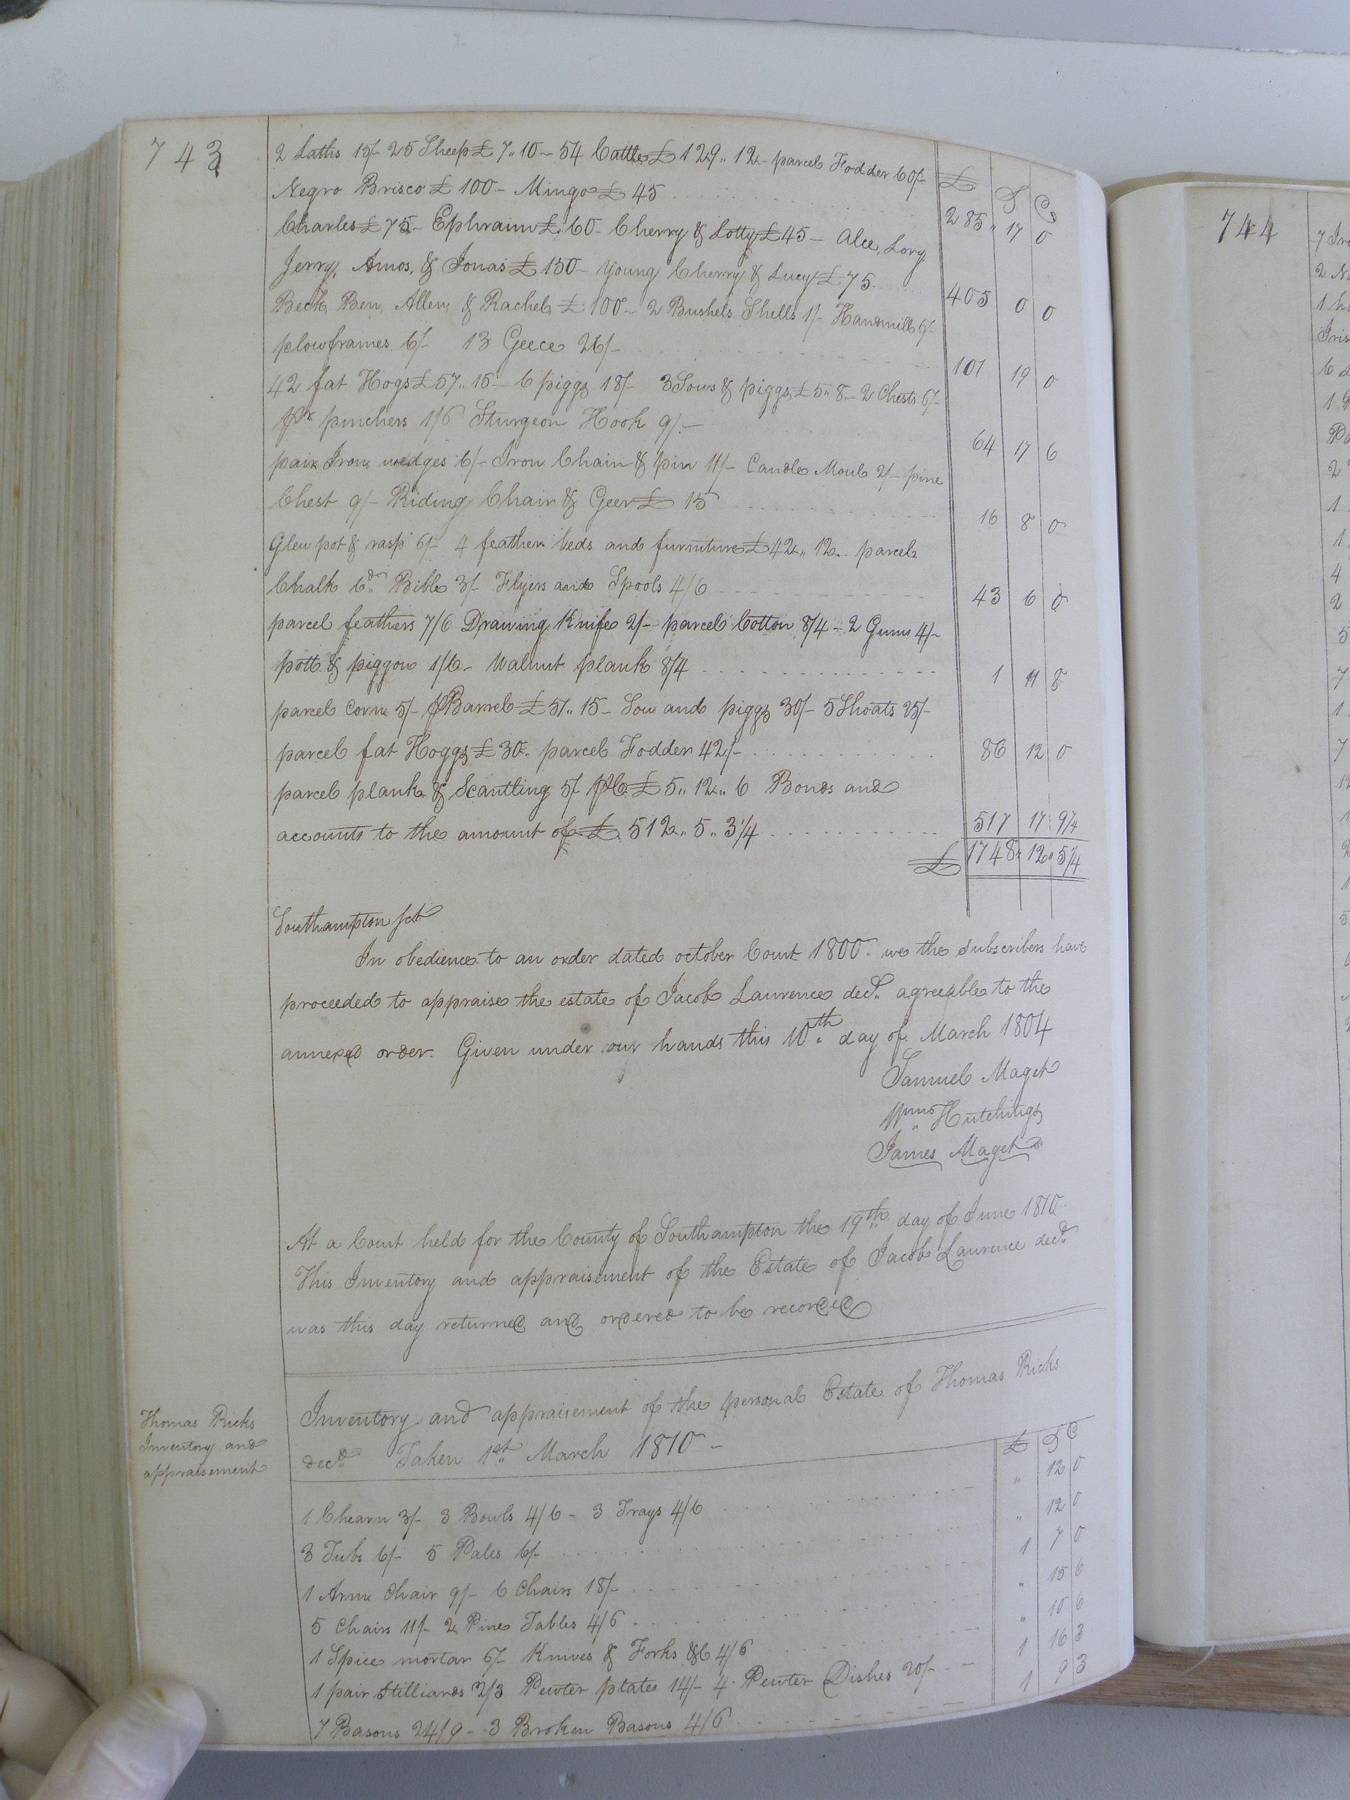 743
2 Laths 15/- 25 Sheep £ 7..10- 54 Cattle £ 129..12- parcel Fodder 60/-
£ S C
Negro Brisco £ 100- Mingo £ 45
285.. 17 0
Charles £ 75- Ephraim £ 60- Cherry & Lotty £ 45- Alce, Lory
Jerry, Amos, & Jonas £ 150- Young Cherry & Lucy £ 75
405 0 0
Beck, Ben, Allen, & Rachel £ 100- 2 Bushels Shells 1/- Handmill 6/-
plowframes 6/- 13 Geece 26/-
101 19 0
42 fat Hogs £ 57..15- 6 piggs 18/- 3 Sows & piggs £ 5..8- 2 Chests 6/-
pr pinchers 1/6 Sturgeon Hook 9/-
64 17 6
pair Iron wedges 6/- Iron Chain & pin 11/- Candle Moulb 2/- pine
Chest 9/- Riding Chair & Geer £ 15
16 8 0
Gleu pot & rasp 6/- 4 feather beds and furniture £ 42..12- parcel
Chalk 6d Bible 3/- Flyers and Spools 4/6
43 6 0
parcel feathers 7/6 Drawing Knife 2/- parcel Cotton 8/4 - 2 Gums 4/-
pott & piggon 1/6- Walnut plank 8/4
1 11 8
parcel corn 5/- Barrel £ 51..15- Sow and piggs 30/- 5 Shoats 25/-
parcel fat Hoggs £ 30. parcel Fodder 42/-
86 12 0
parcel plank & Scantling 5/- £ 5..12..6 Bonds and
accounts to the amount of £ 512..5..3 1/4
517 17 9 1/4
£ 1748.. 12.. 5 1/4
Southampton Sct
In obedience to an order dated october Court 1800. we the subscribers have
proceeded to appraise the estate of Jacob Laurence decd. agreeable to the
annexed order. Given under our hands this 10th day of March 1804
Samuel Maget
Wms Hutchings
James Maget
At a Court held for the County of Southampton the 19th day of June 1810
This Inventory and appraisement of the Estate of Jacob Laurence decd
was this day returned and ordered to be recorded
Thomas Ricks
Inventory and
appraisement
Inventory and appraisement of the personal Estate of Thomas Ricks
decd Taken 1st March 1810-
£ S C
1 Chearn 3/- 3 Bowls 4/6 - 3 Trays 4/6
" 12 0
3 Tubs 6/- 5 Pales 6/-
" 12 0
1 Arm chair 9/- 6 Chairs 18/-
1 7 0
5 chairs 11/- 2 Pine Tables 4/6
" 15 6
1 Spice mortar 6/- Knives & Forks &C 4/6
" 10 6
1 pair Stilliards 2/3 Pewter plates 14/- 4 Pewter Dishes 20/-
1 16 3
7 Basons 24/9 - 3 Broken Basons 4/6
1 9 3
744